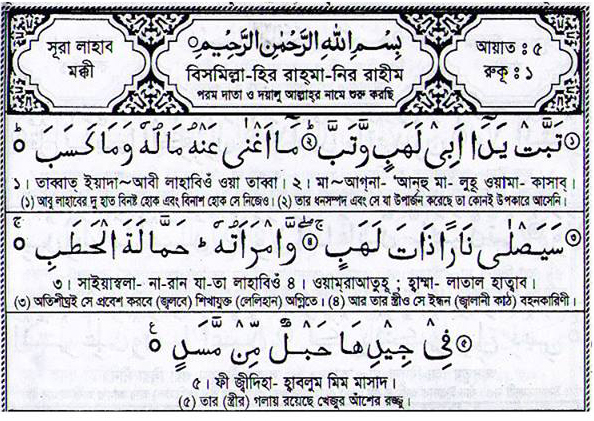 সূরা লাহাব
মক্কী
بِسْمِ اللهِ الرَّحْمٰنِ الرَّحِيْمِ
বিসমিল্লা-হির রাহ্‌মা-নির রাহীম
পরম দাতা ও দয়ালু আল্লাহ্‌র নামে শুরু করছি
আয়াত : ৫
রুকু : ১
تَبَّتْ يَدَآ اَبِىْ لَهَبٍ وَّتَبَّ ۝ مَآ اَغْنٰى عَنْهُ مَالُهٗ وَمَا كَسَبَ ۝
১। তাব্বাত্ ইয়াদা~আবী লাহাবিওঁ ওয়া তাব্বা। ২। মা~আগ্‌না- 'আন্‌হু মা- লুহূ ওয়ামা- কাসাব্।
(১) আবু লাহাবের দু হাত বিনষ্ট হোক এবং বিনাশ হোক সে নিজেও। (২) তার ধনসম্পদ এবং সে যা উপার্জন করেছে তা কোনই উপকারে আসেনি।
سَيَصْلٰى نَارًا ذَاتَ لَهَبٍ ۝ وَّامْرَاَتُهٗ ؕ حَمَّالَةَ الْحَطَبِ ۝
৩। সাইয়াস্বলা- না-রান যা-তা লাহাবিওঁ ৪। ওয়াম্‌রাআতুহূ ; হাম্মা- লাতাল হাত্বাব।
(৩) অতিশীঘ্রই সে প্রবেশ করবে (জ্বলবে) শিখাযুক্ত (লেলিহান) অগ্নিতে। (৪) আর তার স্ত্রীও সে ইন্ধন (জ্বালানী কাঠ) বহনকারিণী।
فِىْ جِيْدِهَا حَبْلٌ مِّنْ مَّسَدٍ ۝
৫। ফী জ্বীদিহা- হাবলুম মিম মাসাদ।
(৫) তার (স্ত্রীর) গলায় রয়েছে খেজুর আঁশের রজ্জু।